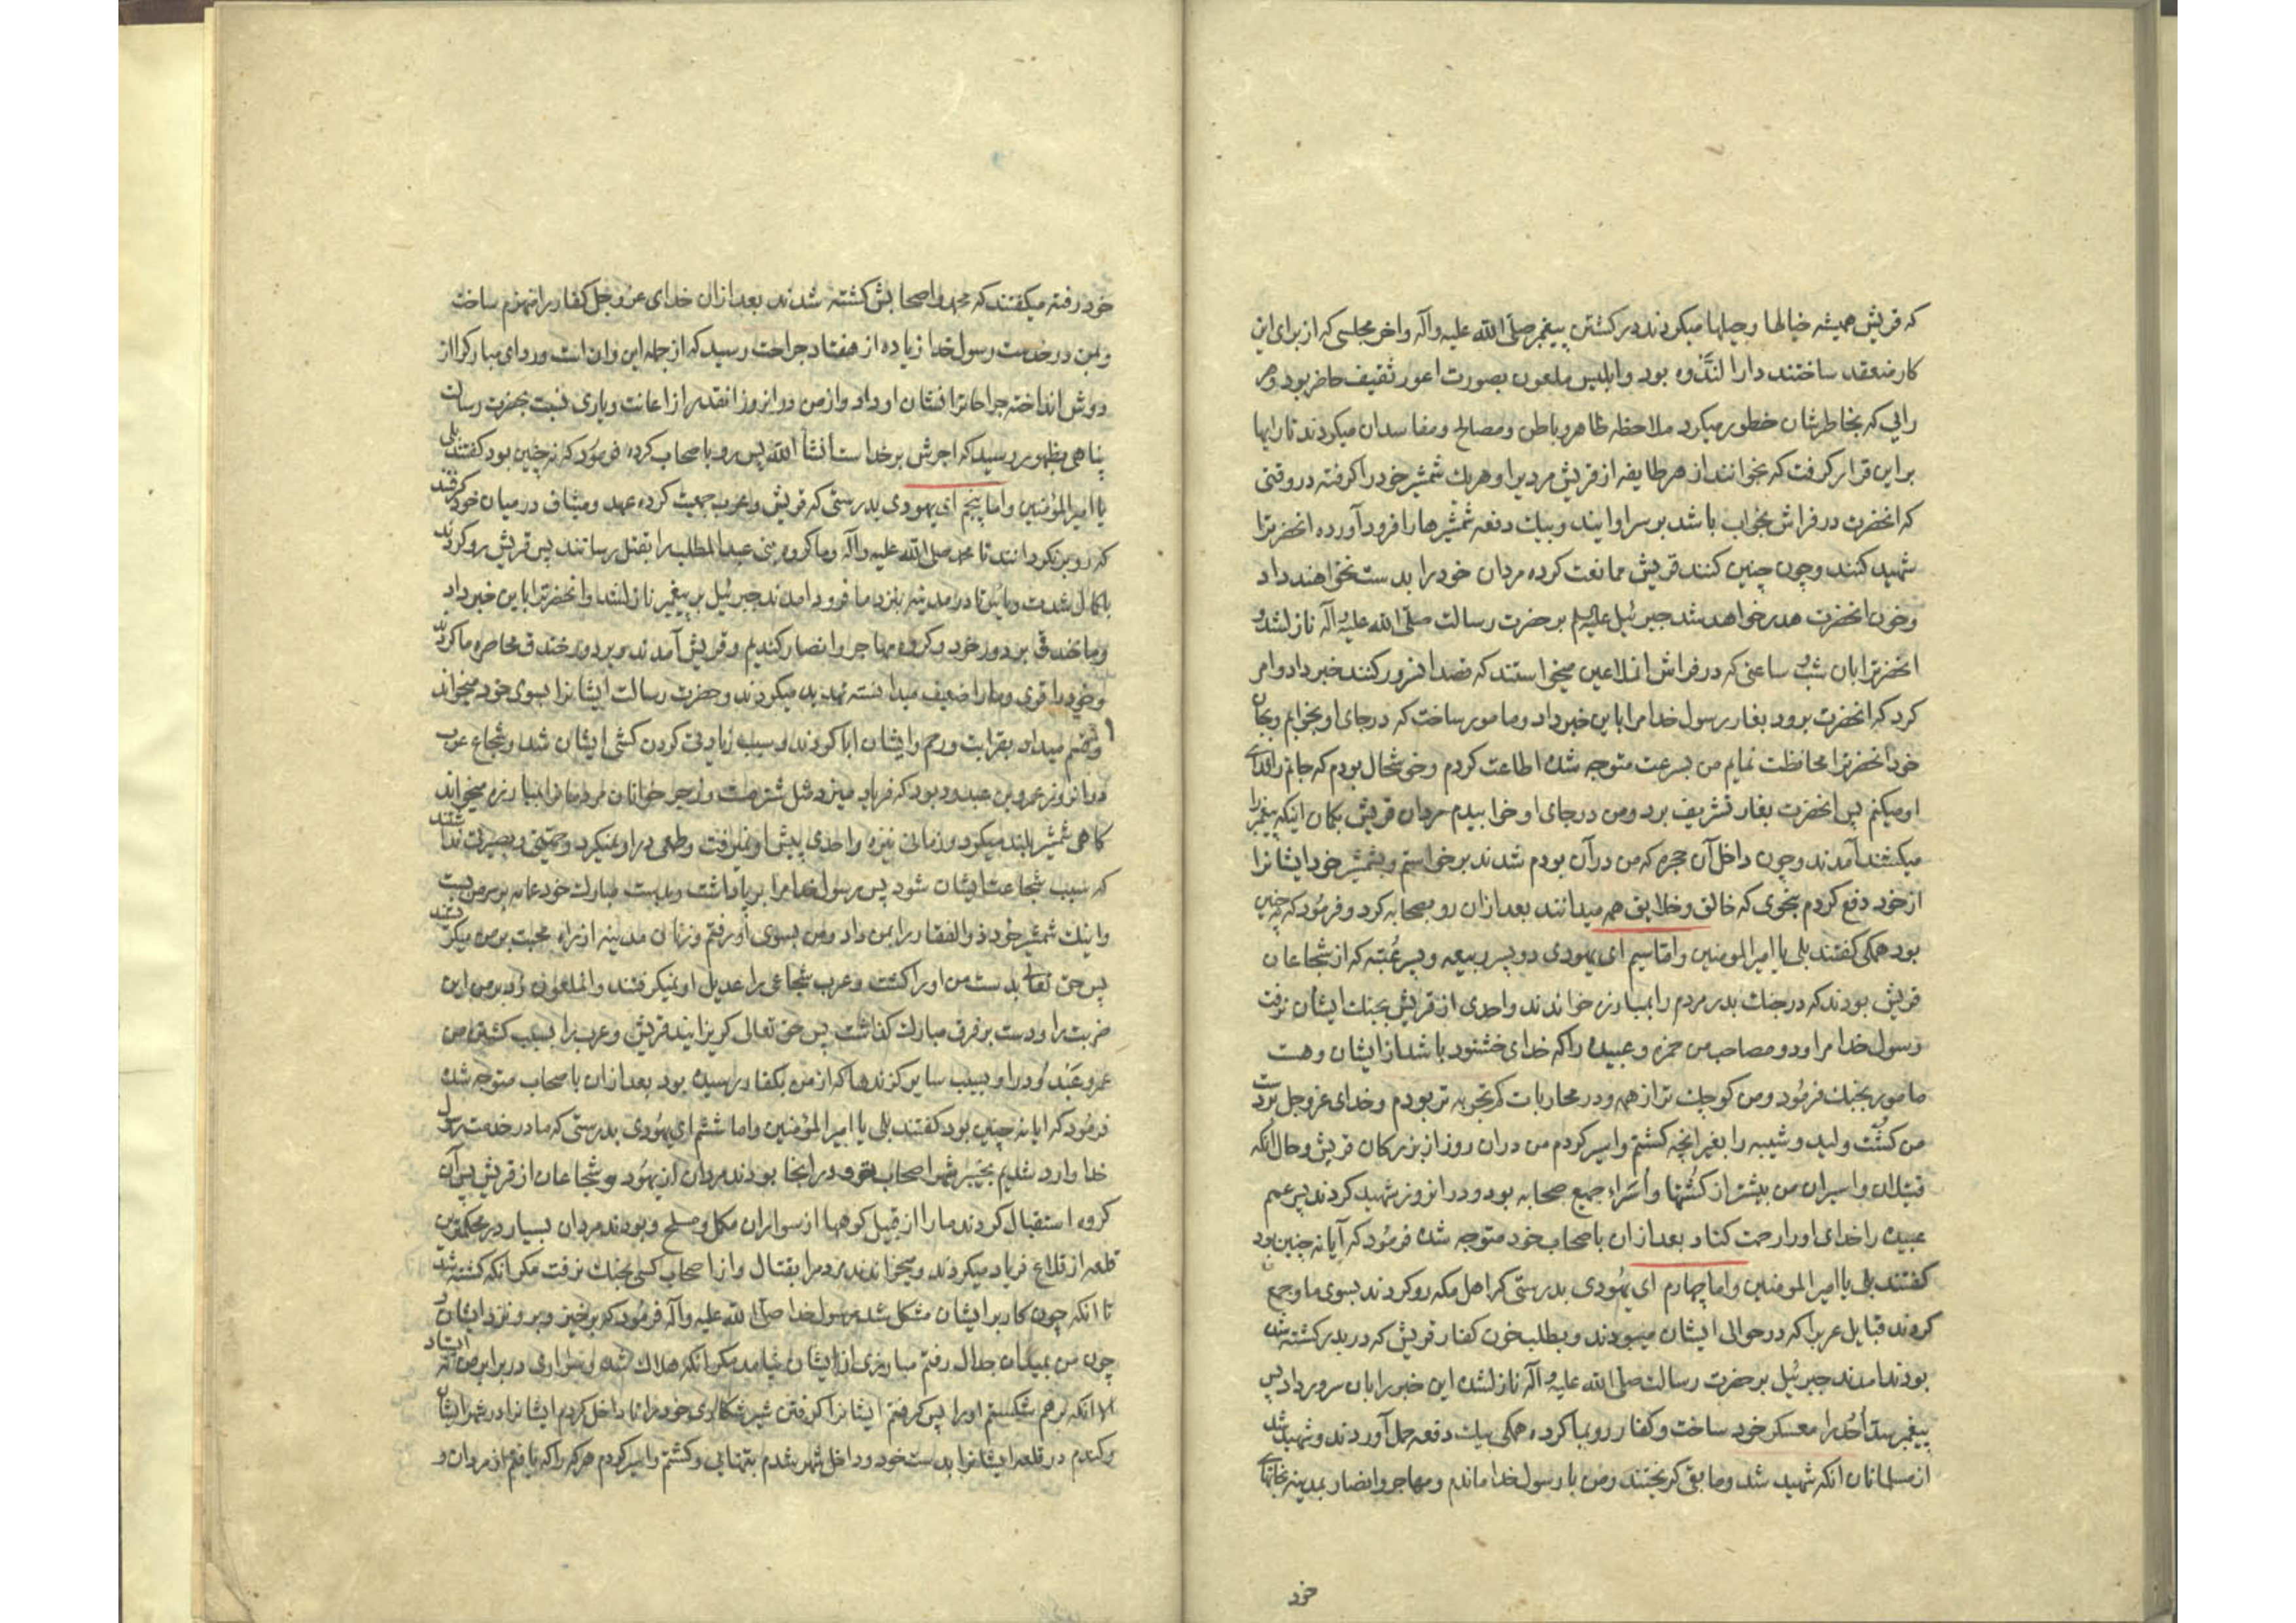 که قریش همیشه خیالها و حیلها میکردند در کشتن پیغمبر صلی الله علیه وآله واخر مجلسی که از برای این
کار منعقد ساختند دار الندوه بود وابلیس ملعون بصورت اعور ثقیف حاضر بود وهر
رایی که بخاطرشان خطور میکرد ملاحظه ظاهر وباطن ومصالح ومفاسد ان میکردند تا رایها
بر این قرار گرفت که بخوانند از هر طایفه از قریش مردیرا وهریك شمشیر خود را گرفته در وقتی
که انحضرت در فراش بخواب باشد بر سر او ایند وبیك دفعه شمشیرها را فرود آورده انحضرترا
شهید کنند وچون چنین کنند قریش ممانعت کرده مردان خود را بدست نخواهند داد
وخون انحضرت هدر خواهد شد جبرئیل علیه السلم بر حضرت رسالت صلی الله علیه وآله نازلشد و
انحضرترا بان شب و ساعتی که در فراش انملاعین میخواستند که قصد انسرور کنند خبر داد وامر
کرد که انحضرت برود بغار رسول خدا مرا باین خبر داد ومامور ساخت که در جای او بخوابم وبجان
خود انحضرترا محافظت نمایم من بسرعت متوجه شده اطاعت کردم وخوشحال بودم که جانم را فدای
او میکنم پس انحضرت بغار تشریف برد ومن در جای او خوابیدم مردان قریش بکمان اینکه پیغمبر را
میکشند آمدند وچون داخل آن حجره که من در آن بودم شدند برخواستم وبشمشیر خود ایشانرا
از خود دفع کردم بنحوی که خالق وخلایق همه میدانند بعد از ان رو بصحابه کرد وفرمود که نه چنین
بود همکی گفتند بلی یا امیر المومنین واما سیم ای یهودی دو پسر ربیعه وپسر عتبه که از شجاعان
قریش بودند که در جنك بدر مردم را بمبارزه خواندند واحدی از قریش بجنك ایشان نرفت
رسول خدا مرا ودو مصاحب من حمزه وعبیده را که خدای خشنود باشد از ایشان وهست
مامور بجنك فرمود ومن کوچك تر از همه ودر محاربات کم تجربه تر بودم وخدای عز وجل بدست
من کشت ولید وشیبه را بغیر انچه کشتم واسیر کردم من دران روز از بزرکان قریش وحال انکه
قتیلان واسیران من بیشتر از کشتها واسراء جمیع صحابه بود ودر انروز شهید کردند پسر عمم
عبیده را خدای او را رحمت کناد بعد از ان باصحاب خود متوجه شده فرمود که آیا نه چنین بود
کفتند بلی یا امیر المومنین واما چهارم ای یهودی بدرستی که اهل مکه رو کردند بسوی ما وجمع
کردند قبایل عربرا که در حوالی ایشان میبودند وبطلب خون کفار قریش که در بدر کشته شده
بودند امدند جبرئیل بر حضرت رسالت صلی الله علیه وآله نازلشده این خبر را بان سرور داد پس
پیغمبر سد احد را معسکر خود ساخت وکفار رو بما کرده همکی بیك دفعه حمل آوردند وشهید شد
از مسلمانان انکه شهید شد ومابقی کریختند ومن با رسول خدا ماندم ومهاجر وانصار بمدینه بخانهای
خود
خود رفته میکفتند که محمد واصحابش کشته شدند بعد ازان خدای عز وجل کفار را منهزم ساخت
وبمن در خدمت رسول خدا زیاده از هفتاد جراحت رسید که از جمله این وان است وردای مبارکرا از
دوش انداخته جراحاترا نشان او داد واز من در انروز انقدر از اعانت ویاری نسبت بحضرت رسالت
پناهی بظهور رسید که اجرش بر خداست انشأ الله پس رو باصحاب کرده فرمود که نه چنین بود کفتند بلی
یا امیر المؤمنین واما پنجم ای یهودی بدرستی که قریش وعرب جمعیت کرده عهد ومیثاق در میان خود کرفتند
که رو برنکردانند تا محمد صلی الله علیه وآله وما کروه بنی عبد المطلب را بقتل رسانند پس قریش رو کردند
با کمال شدت وباس تا در مدینه بنزد ما فرود امدند جبرئیل بر پیغمبر نازلشد وانحضرترا باین خبر داد
وما خندقی بر دور خود وکروه مهاجر وانصار کندیم وقریش آمدند وبر دور خندق محاصره ما کردند
وخود را قوی وما را ضعیف میدانسته تهدید میکردند وحضرت رسالت ایشانرا بسوی خود میخواند
وقسم میداد بقرابت ورحم وایشان ابا کردند وسبب زیادتی کردن کشی ایشان شد وشجاع عرب
در انروز عمرو بن عبد ود بود که فریاد میزد مثل شتر مست ورجز خوانان مردمانرا بمبارزه میخواند
کاهی شمشیر بلند میکرد وزمانی نیزه واحدی پیش او نمیرفت وطمعی در او نمیکرد وحمیتی وبصیرتی نداشتند
که سبب شجاعت ایشان شود پس رسول خدا مرا بر پا داشت وبدست مبارك خود عمامه بر سر من بست
واینك شمشیر خود ذو الفقار را بمن داد ومن بسوی او رفتم وزنان مدینه از راه محبت بر من میکریستند
پس حق تعالی بدست من او را کشت وعرب شجاعی را عدیل او نمیکرفتند وانملعون زد بر من این
ضربت را ودست بر فرق مبارك کذاشت پس حق تعالی کریزانید قریش وعرب را بسبب کشتن من
عمرو عبد ود را وبسبب سایر کزندها که از من بکفار رسیده بود بعد ازان باصحاب متوجه شده
فرمود که ایا نه چنین بود کفتند بلی یا امیر المؤمنین واما ششم ای یهودی بدرستی که ما در خدمت رسول
خدا وارد شدیم بخیبر شهر اصحاب تو ودر انجا بودند مردان از یهود وشجاعان از قریش پس آن
کروه استقبال کردند ما را از قبیل کوهها از سواران مکمل ومسلح وبودند مردان بسیار در محکمترین
قلعه از قلاع فریاد میکردند ومیخواندند مردم را بقتال واز اصحاب کسی بجنك نرفت مکر انکه کشته شد
تا انکه چون کار بر ایشان مشکل شد رسول خدا صلی الله علیه وآله فرمود که برخیز وبرو نزد ایشان و
چون من بمیدان جدال رفتم مبارزی از ایشان نیامد مکر انکه هلاك شد وسواری در برابر من نه ایستاد
الا انکه بر هم شکستم او را پس کرفتم ایشانرا کرفتن شیر شکاری خود را تا داخل کردم ایشانرا در شهر ایشان
وکندم در قلعه ایشانرا بدست خود وداخل شهر شدم بتنهایی وکشتم واسیر کردم هر که را که یافتم از مردان و